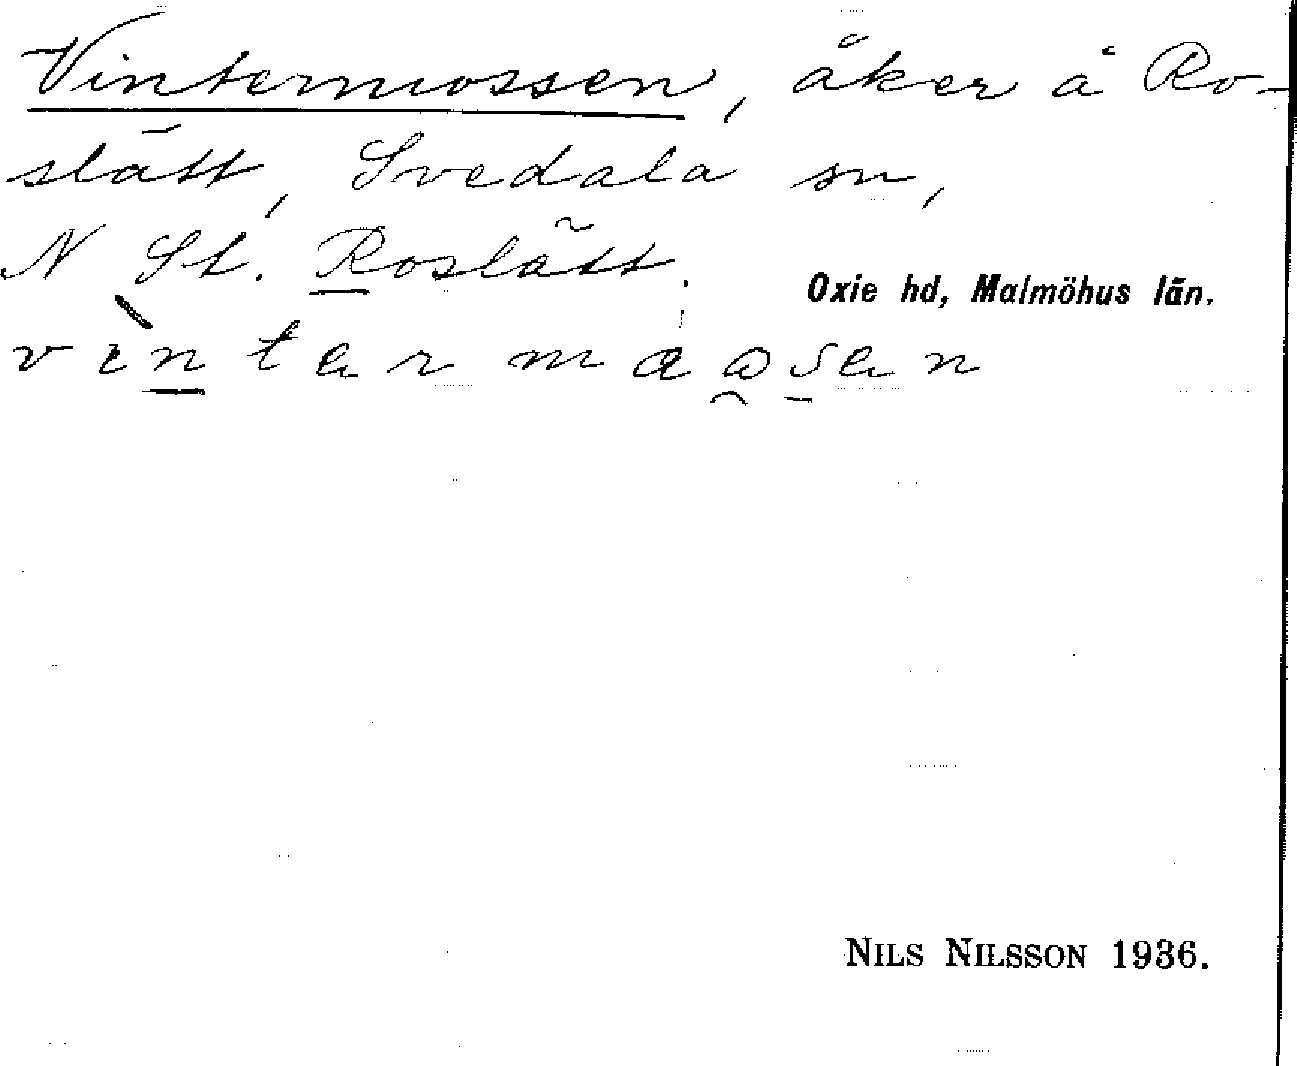 Vintermossen, åker å Ro-
slätt, Svedala sn,
N St. Roslätt.
Oxie hd, Malmöhus län.
NILS NILSSON 1936.